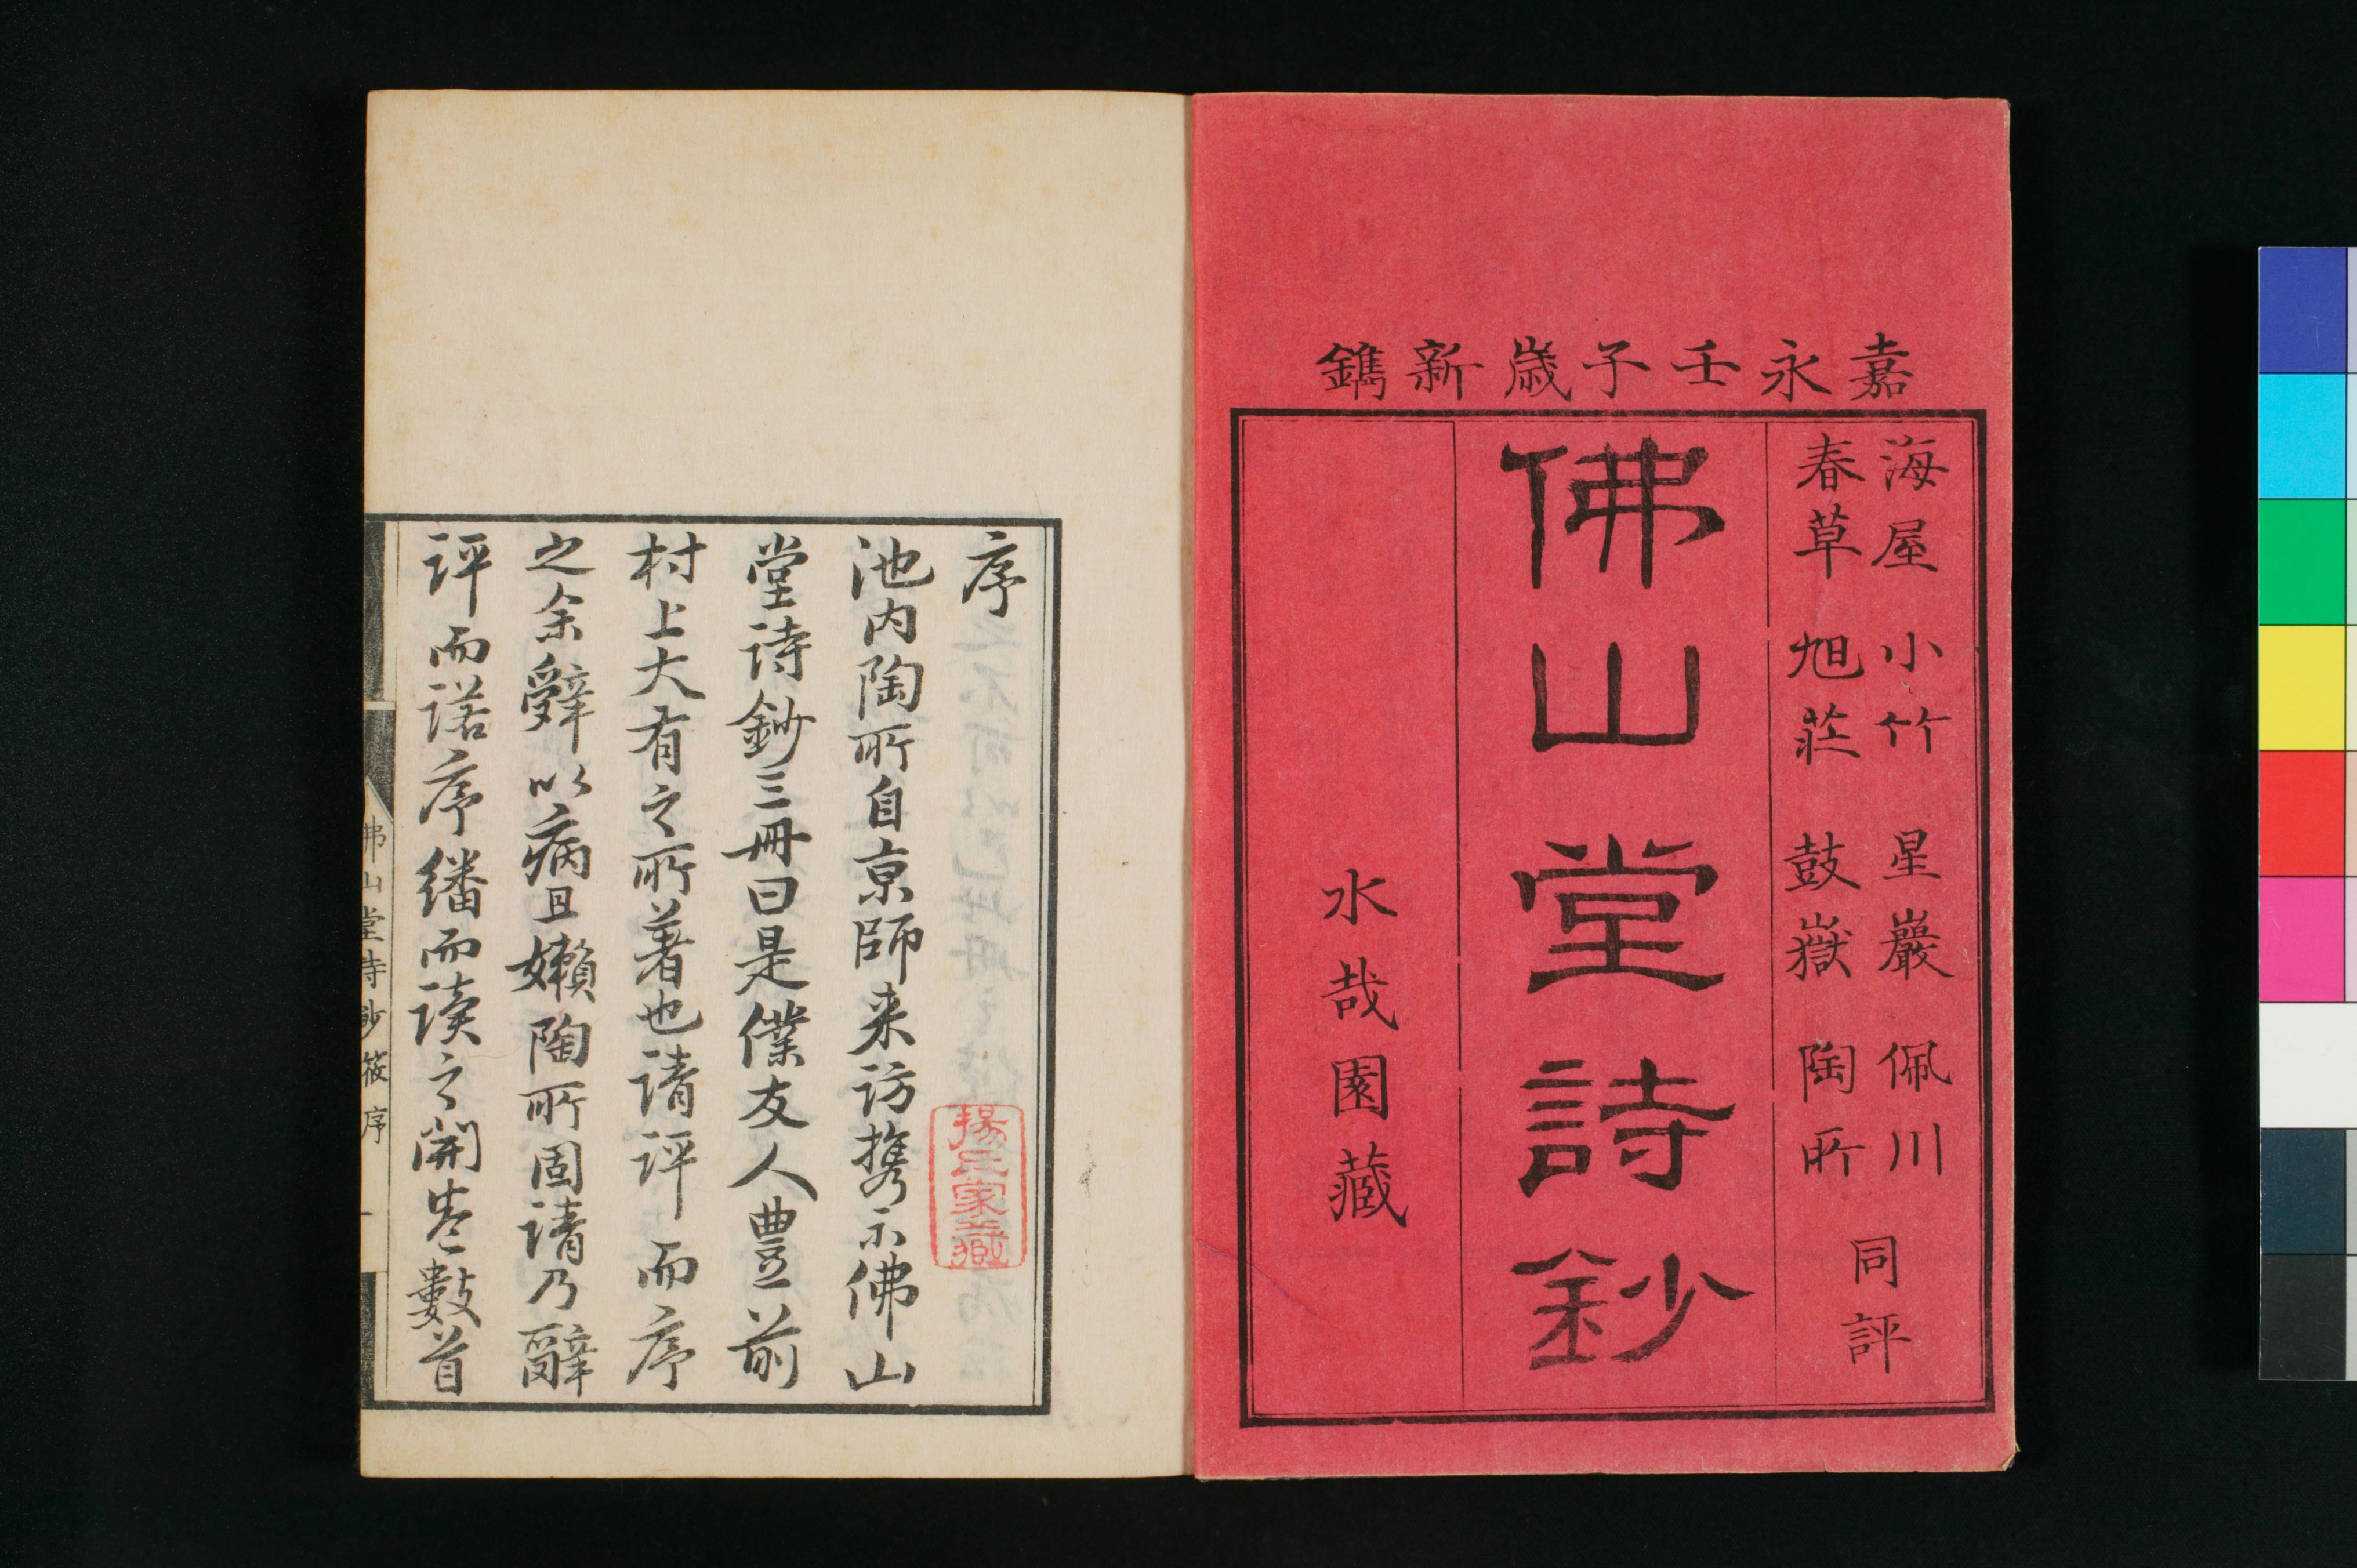 嘉永壬子歳新鐫
海屋 小竹 星巖 佩川
春草 旭莊 鼓嶽 陶所
同評
佛山堂詩鈔
水哉園藏
序
池内陶所自京師来訪携示佛山
堂詩鈔三冊曰是僕友人豊前
村上大有之所著也請評而序
之余辤以病且嬾陶所固請乃辭
評而諾序繙而讀之開巻數首
佛山堂詩鈔 筱序 一